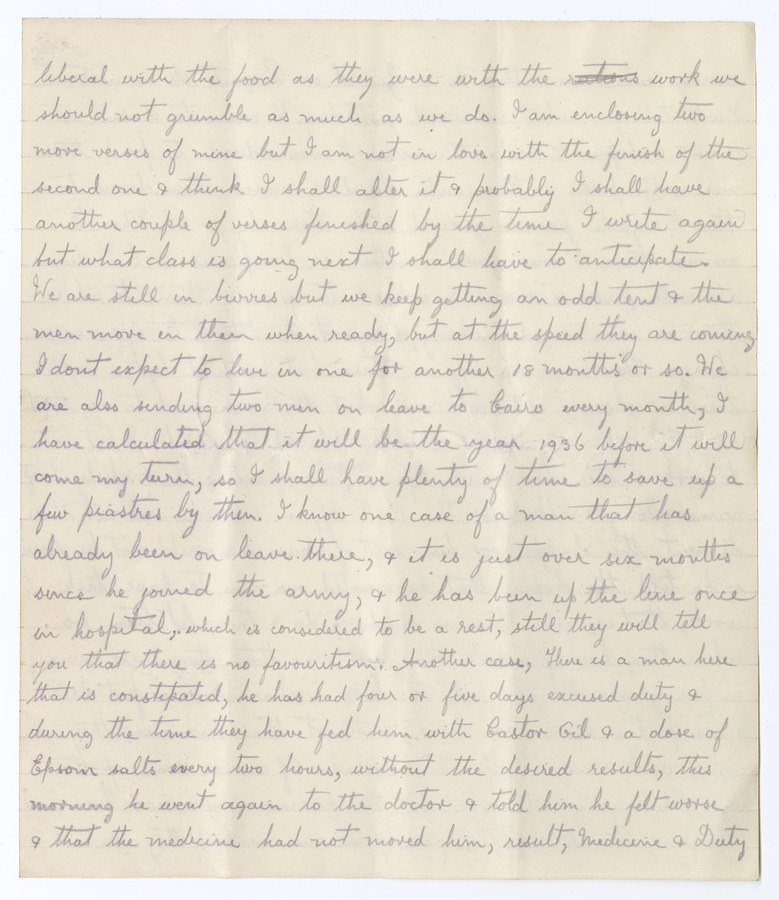 liberal with the food as they were with the rations work we
should not grumble as much as we do. I am enclosing two
more verses of mine but I am not in love with the finish of the
second one & think I shall alter it & probably I shall have
another couple of verses finished by the time I write again
but what class is going next I shall have to anticipate.
We are still in bivvies but we keep getting an odd tent & the
men move in them when ready, but at the speed they are coming
I dont expect to live in one for another 18 months or so. We
are also sending two men on leave to Cairo every month, I
have calculated that it will be the year 1936 before it will
come my turn, so I shall have plenty of time to save up a
few piastres by then. I know one case of a man that has
already been on leave there, & it is just over six months
since he joined the army, & he has been up the line once
in hospital, which is considered to be a rest, still they will tell
you that there is no favouritism. Another case, There is a man here
that is constipated, he has had four or five days excused duty &
during the time they have fed him with Castor Oil & a dose of
Epsom salts every two hours, without the desired results, this
morning he went again to the doctor & told him he felt worse
& that the medicine had not moved him, result, Medicine & Duty